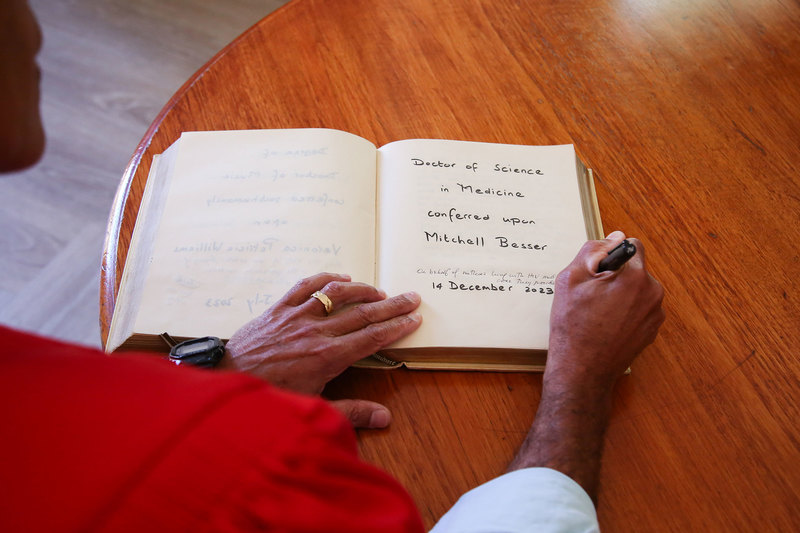 Doctor of Science
in Medicine
conferred upon
Mitchell Besser
On behalf of mothers living with HIV and
14 December 2023